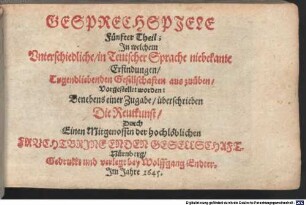 GESPRECHSPIELE
Fünfter Theil;
In welchem
Unterschiedliche/in Teutscher Sprache niebekante
Erfindungen/
Tugendliebenden Gesellschaften auszuüben/
Vorgestellet worden:
Benebens einer Zugabe/ überschrieben
Die Reutkunst/
Durch
Einen Mitgenossen der hochlöblichen
FRUCHTBRINGENDEN GESELLSCHAFT.
Nürnberg/
Gedruckt und verlegt bey Wolffgang Endter.
Im Jahre 1645.